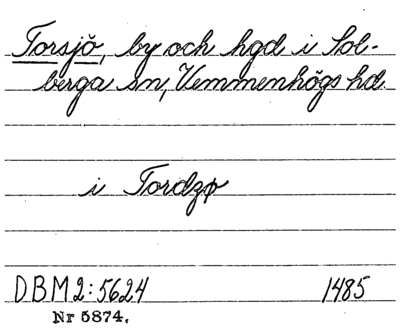 Torsjö, by och hgd i Sol-
berga sn, Vemmenhögs hd.
i Tordzø
DBM 2:5624 1485
Nr 5874.